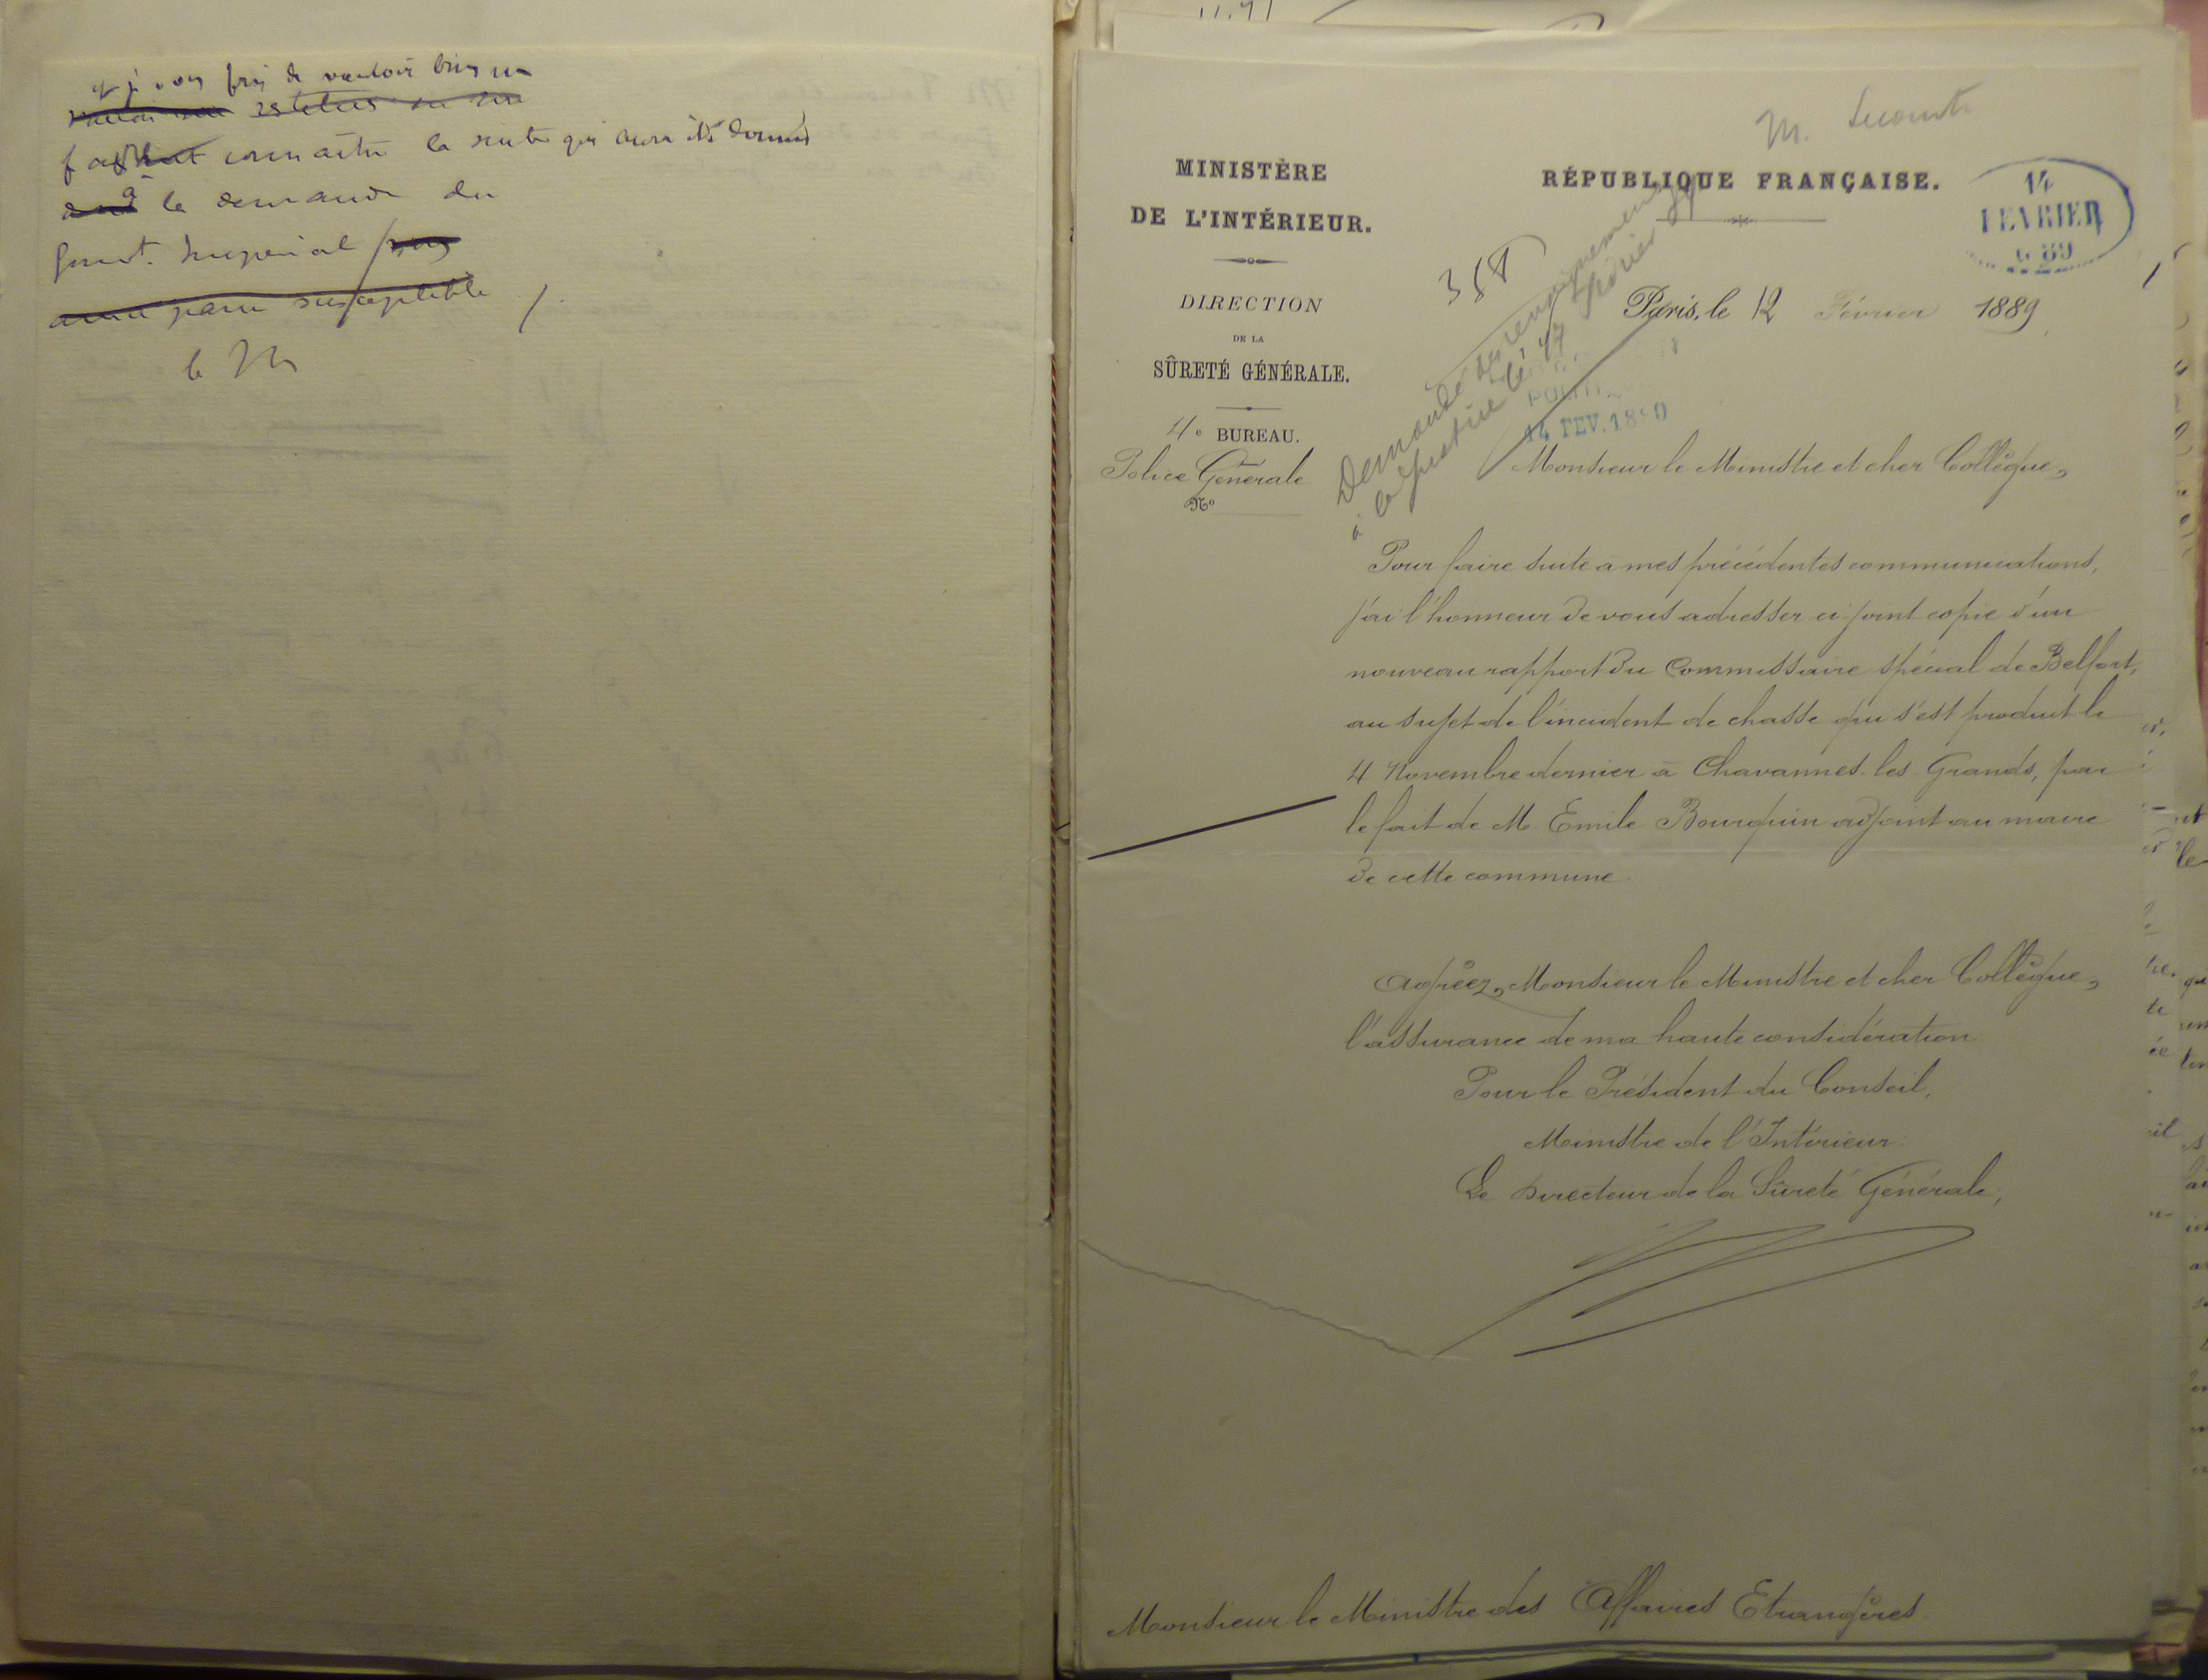 et je vous prie de vouloir bien me
connaître la suite qui aura été donnée
à la demande du
Gouvt. Impérial
paru susceptible
le M
M. Lecomte
MINISTÈRE
DE L'INTÉRIEUR.
DIRECTION
DE LA
SÛRETÉ GÉNÉRALE.
4e BUREAU.
Police Générale
No
RÉPUBLIQUE FRANÇAISE.
14
FEVRIER
Demandé des renseignements
à la Justice le 17 février 89
Paris, le 12 Février 1889
POLITI
14 FEV. 18
Monsieur le Ministre et cher Collègue,
Pour faire suite à mes précédentes communications,
j'ai l'honneur de vous adresser ci-joint copie d'un
nouveau rapport du Commissaire spécial de Belfort,
au sujet de l'incident de chasse qui s'est produit le
4 Novembre dernier à Chavannes-les-Grands, par
le fait de M. Emile Bourquin adjoint au maire
de cette commune.
Agréez, Monsieur le Ministre et cher Collègue,
l'assurance de ma haute considération.
Pour le Président du Conseil,
Ministre de l'Intérieur:
Le Directeur de la Sûreté Générale,
Monsieur le Ministre des Affaires Etrangères.